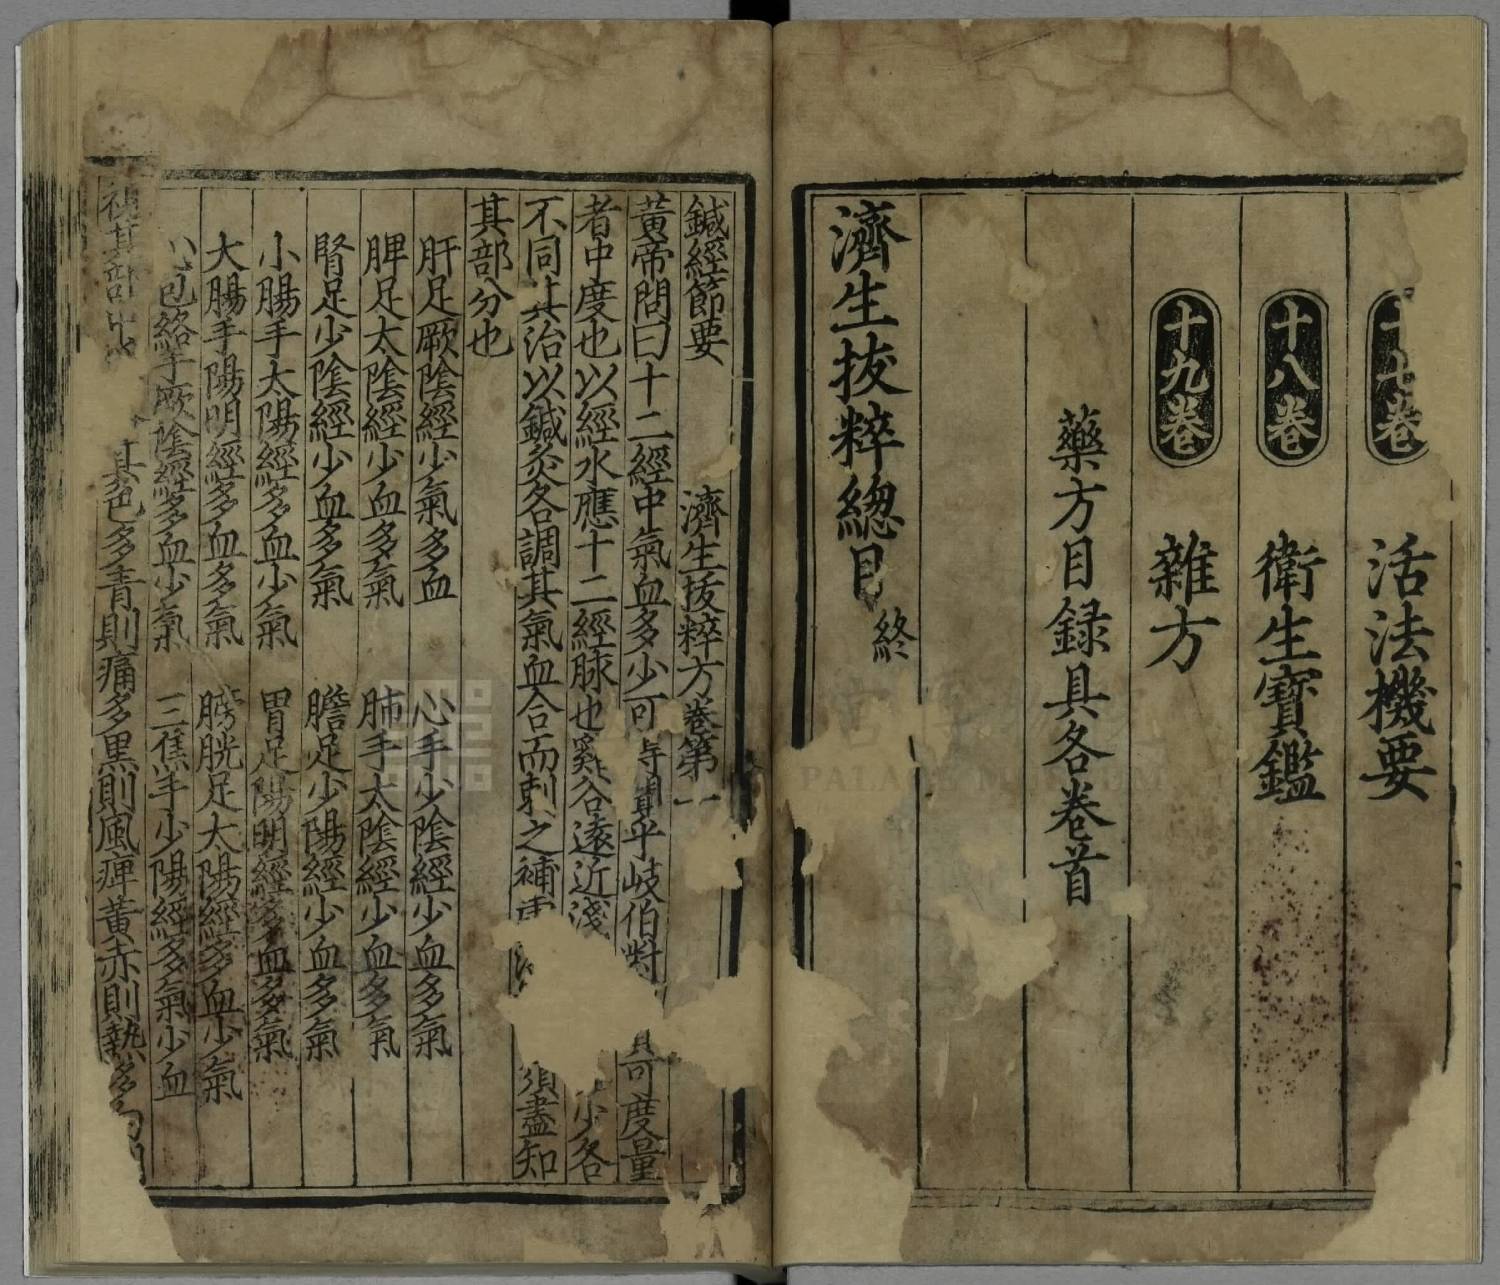 十七卷 活法機要
十八卷 衛生寶鑑
十九卷 雜方
藥方目録具各卷首
濟生拔粹總目終
鍼經節要 濟生拔粹方卷第一
黃帝問曰十二經中氣血多少可得聞乎岐伯對 其可度量
者中度也以經水應十二經脉也谿谷遠近淺 少各
不同其治以鍼灸各調其氣血合而刺之補 須盡知
其部分也
肝足厥陰經少氣多血 心手少陰經少血多氣
脾足太陰經少血多氣 肺手太陰經少血多氣
腎足少陰經少血多氣 膽足少陽經少血多氣
小腸手太陽經多血少氣 胃足陽明經多血多氣
大腸手陽明經多血多氣 膀胱足太陽經多血少氣
包絡手厥陰經多血少氣 三焦手少陽經多氣少血
視其部中 其色多青則痛多黑則風痺黃赤則熱多
PALACE MUSEUM